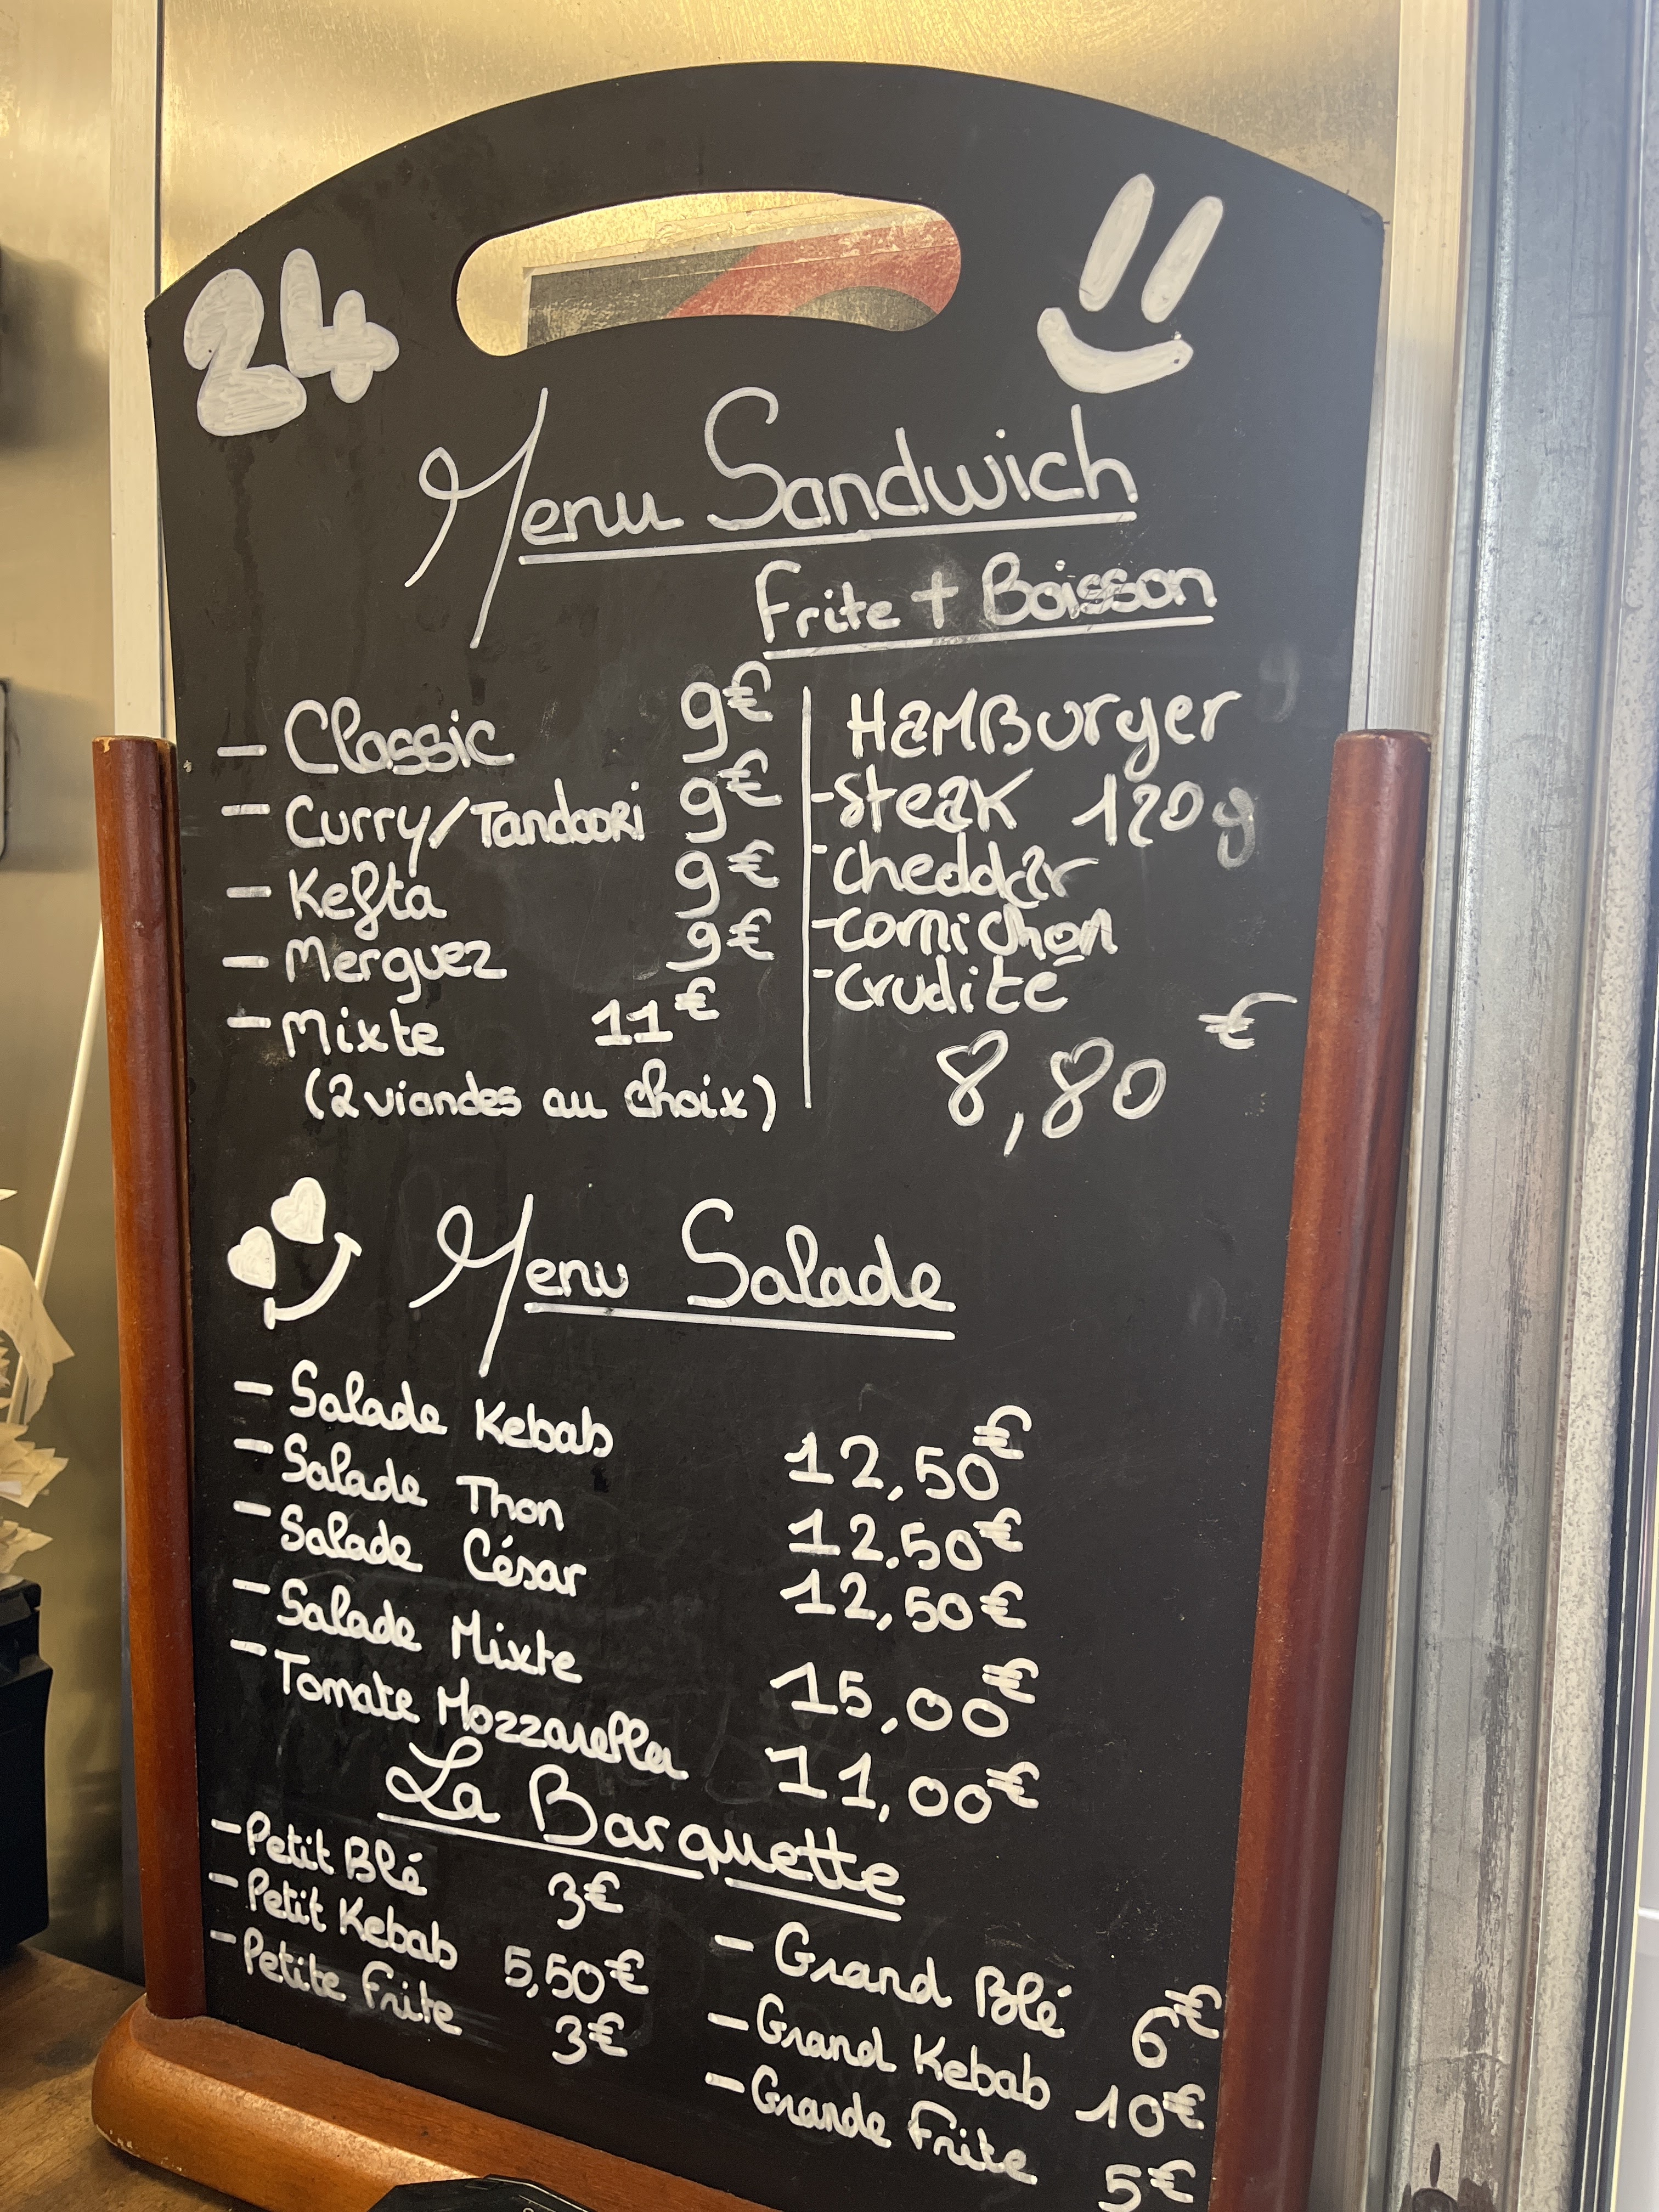 24
Menu Sandwich
Frite + Boisson
- Classic 9€
- Curry/Tandoori 9€
- Kefta 9€
- Merguez 9€
- Mixte 11€
(2 viandes au choix)
HaMBurger
-steak 120g
-cheddar
-cornichon
-crudité
8,80€
Menu Salade
- Salade Kebab 12,50€
- Salade Thon 12.50€
- Salade César 12,50€
- Salade Mixte 15,00€
- Tomate Mozzarella 11,00€
La Barquette
- Petit Blé 3€
- Petit Kebab 5,50€
- Petite Frite 3€
- Grand Blé 6€
- Grand Kebab 10€
- Grande Frite 5€